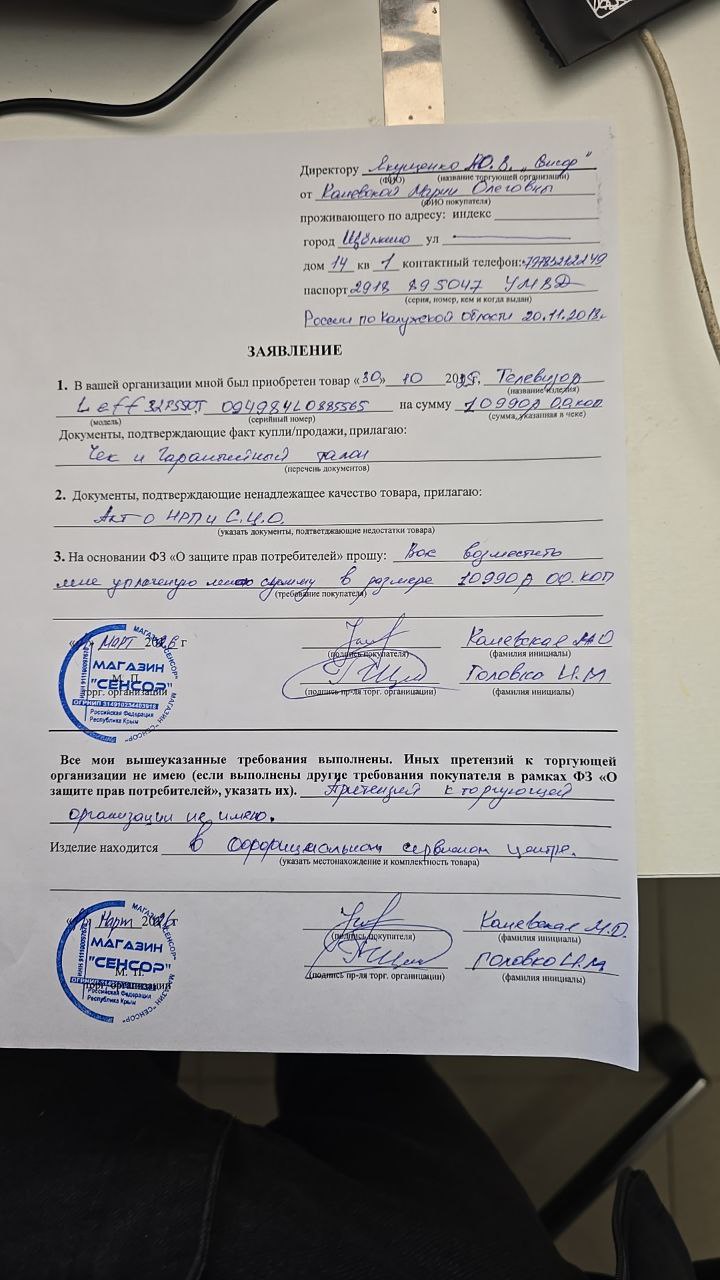 Директору Якущенко Ю.В. „Сенсор"
(ФИО) (название торгующей организации)
от Каневской Марии Олеговны
(ФИО покупателя)
проживающего по адресу: индекс
город Щёлкино ул
дом 14 кв 1 контактный телефон: +79785212249
паспорт 2918 895047 УМВД
(серия, номер, кем и когда выдан)
России по Калужской области 20.11.2018г
ЗАЯВЛЕНИЕ
1. В вашей организации мной был приобретен товар «30» 10 2025, Телевизор
(название изделия)
Leff 32F550T 09498410885565 на сумму 10990р 00 коп
(модель) (серийный номер) (сумма, указанная в чеке)
Документы, подтверждающие факт купли/продажи, прилагаю:
Чек и Гарантийный талон
(перечень документов)
2. Документы, подтверждающие ненадлежащее качество товара, прилагаю:
Акт о НРП и С.Ц.О.
(указать документы, подтветджающие недостатки товара)
3. На основании ФЗ «О защите прав потребителей» прошу: Вас возместить
мне уплаченую мною сумму в размере 10990р 00 коп
(требование покупателя)
Март 2026 г Каневская М.О
(подпись покупателя) (фамилия инициалы)
Головко И.М
М. П. торг. организации (подпись пр-ля торг. организации) (фамилия инициалы)
МАГАЗИН
"СЕНСОР"
ОГРНИП 314910234403918
Российская Федерация
Республика Крым
Все мои вышеуказанные требования выполнены. Иных претензий к торгующей
организации не имею (если выполнены другие требования покупателя в рамках ФЗ «О
защите прав потребителей», указать их). Претензий к торгующей
организации не имею.
Изделие находится в официальном сервисном центре.
(указать местонахождение и комплектность товара)
Март 2026 г Каневская М.О.
(подпись покупателя) (фамилия инициалы)
Головко И.М
М. П. торг. организации (подпись пр-ля торг. организации) (фамилия инициалы)
МАГАЗИН
"СЕНСОР"
Российская Федерация
Республика Крым